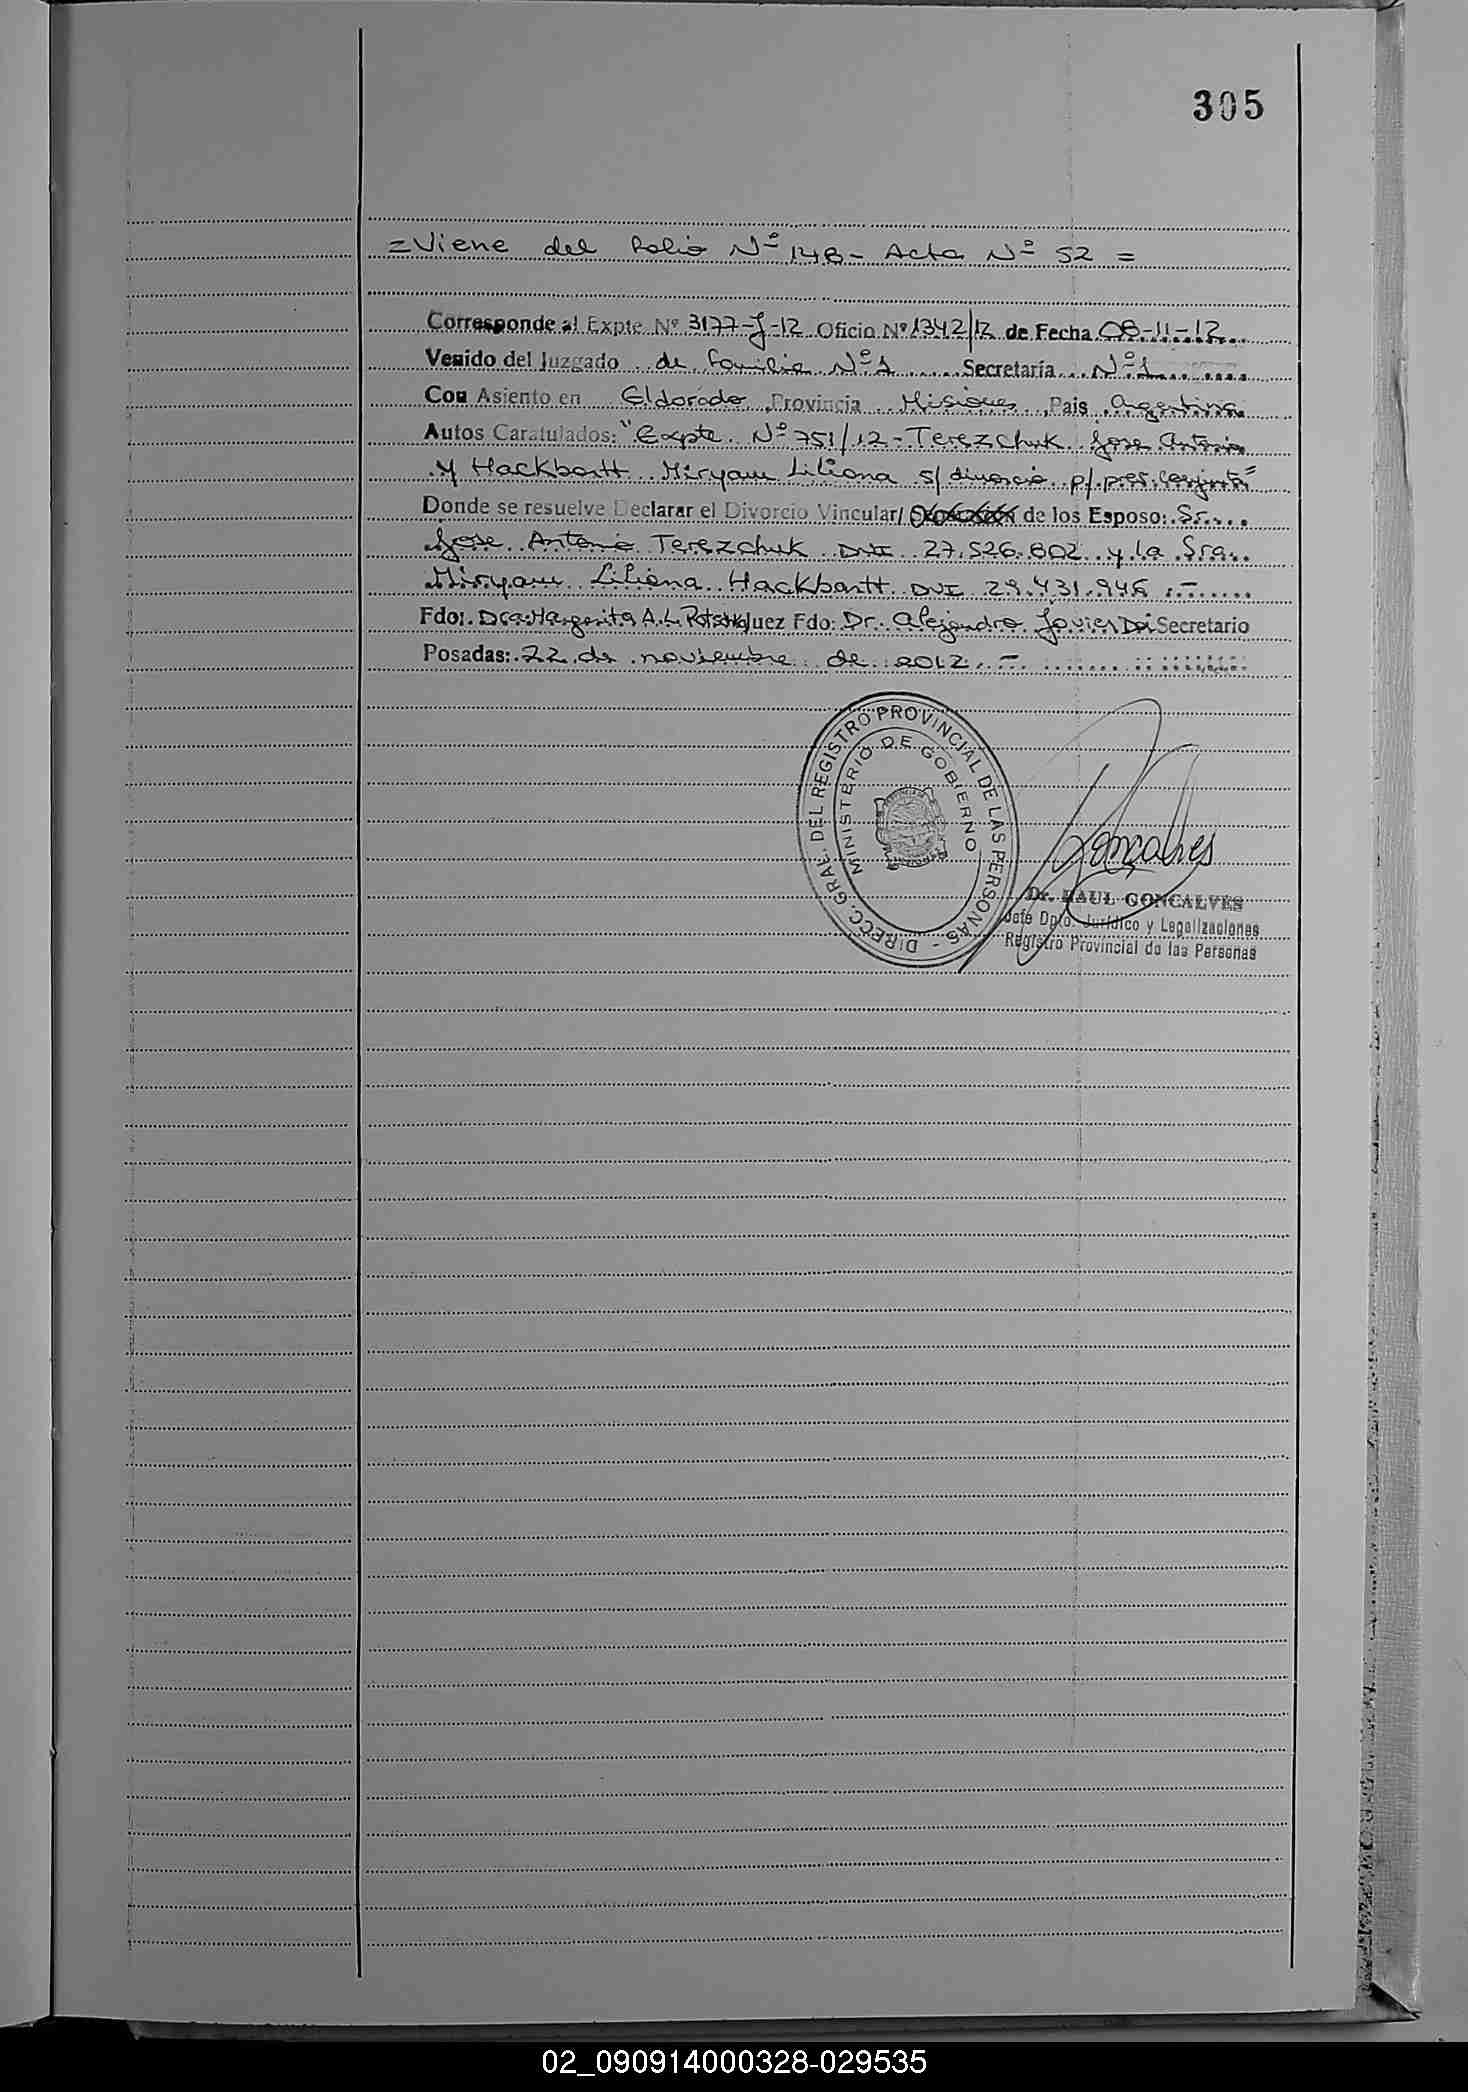 305
=Viene del Folio Nº 148- Acta Nº 52 =
Corresponde al Expte Nº 3177-J-12 Oficio Nº 1342/12 de Fecha 08-11-12
Venido del Juzgado de Familia Nº 1 Secretaría Nº 1
Con Asiento en Eldorado Provincia Misiones Pais Argentina
Autos Caratulados: "Expte. Nº 751/12- Terezchuk Jose Antonio
y Hackbartt Miryam Liliana s/ divorcio p/ pres. conjunta"
Donde se resuelve Declarar el Divorcio Vincular/ de los Esposo: Sr.
Jose Antonio Terezchuk DNI 27.526.802 y la Sra.
Miryam Liliana Hackbartt DNI 29.431.946 .-
Fdo: Dra. Margarita A. L. Juez Fdo: Dr. Alejandro Javier Secretario
Posadas: 22 de noviembre de 2012.-
DIRECC. GRAL. DEL REGISTRO PROVINCIAL DE LAS PERSONAS -
MINISTERIO DE GOBIERNO
Goncalves
Dr. RAUL GONCALVES
Jefe Dpto. Jurídico y Legalizaciones
Registro Provincial de las Personas
02_090914000328-029535